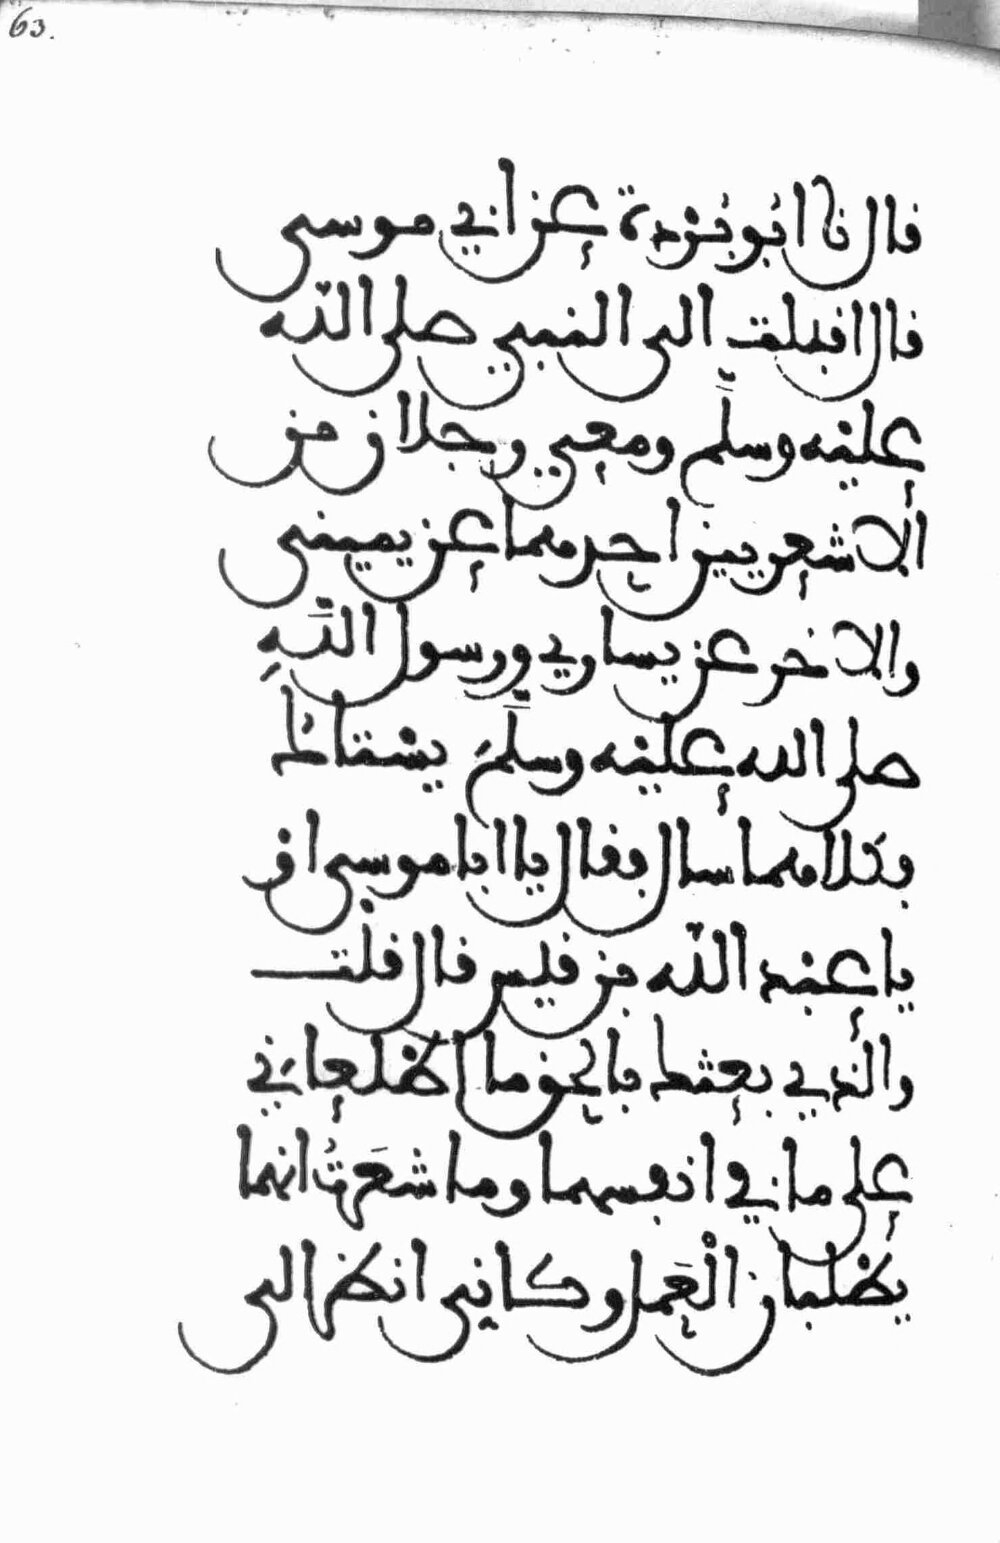 63.
قال نا ابو بردة عن ابي موسى
قال اقبلت الى النبي صلى الله
عليه وسلم ومعي رجلان من
الاشعريين احدهما عن يميني
والاخر عن يساري ورسول الله
صلى الله عليه وسلم يستاك
فكلاهما سال فقال يا ابا موسى او
يا عبد الله بن قيس قال قلت
والذي بعثك بالحق ما اطلعاني
على ما في انفسهما وما شعرت انهما
يطلبان العمل وكاني انظر الى